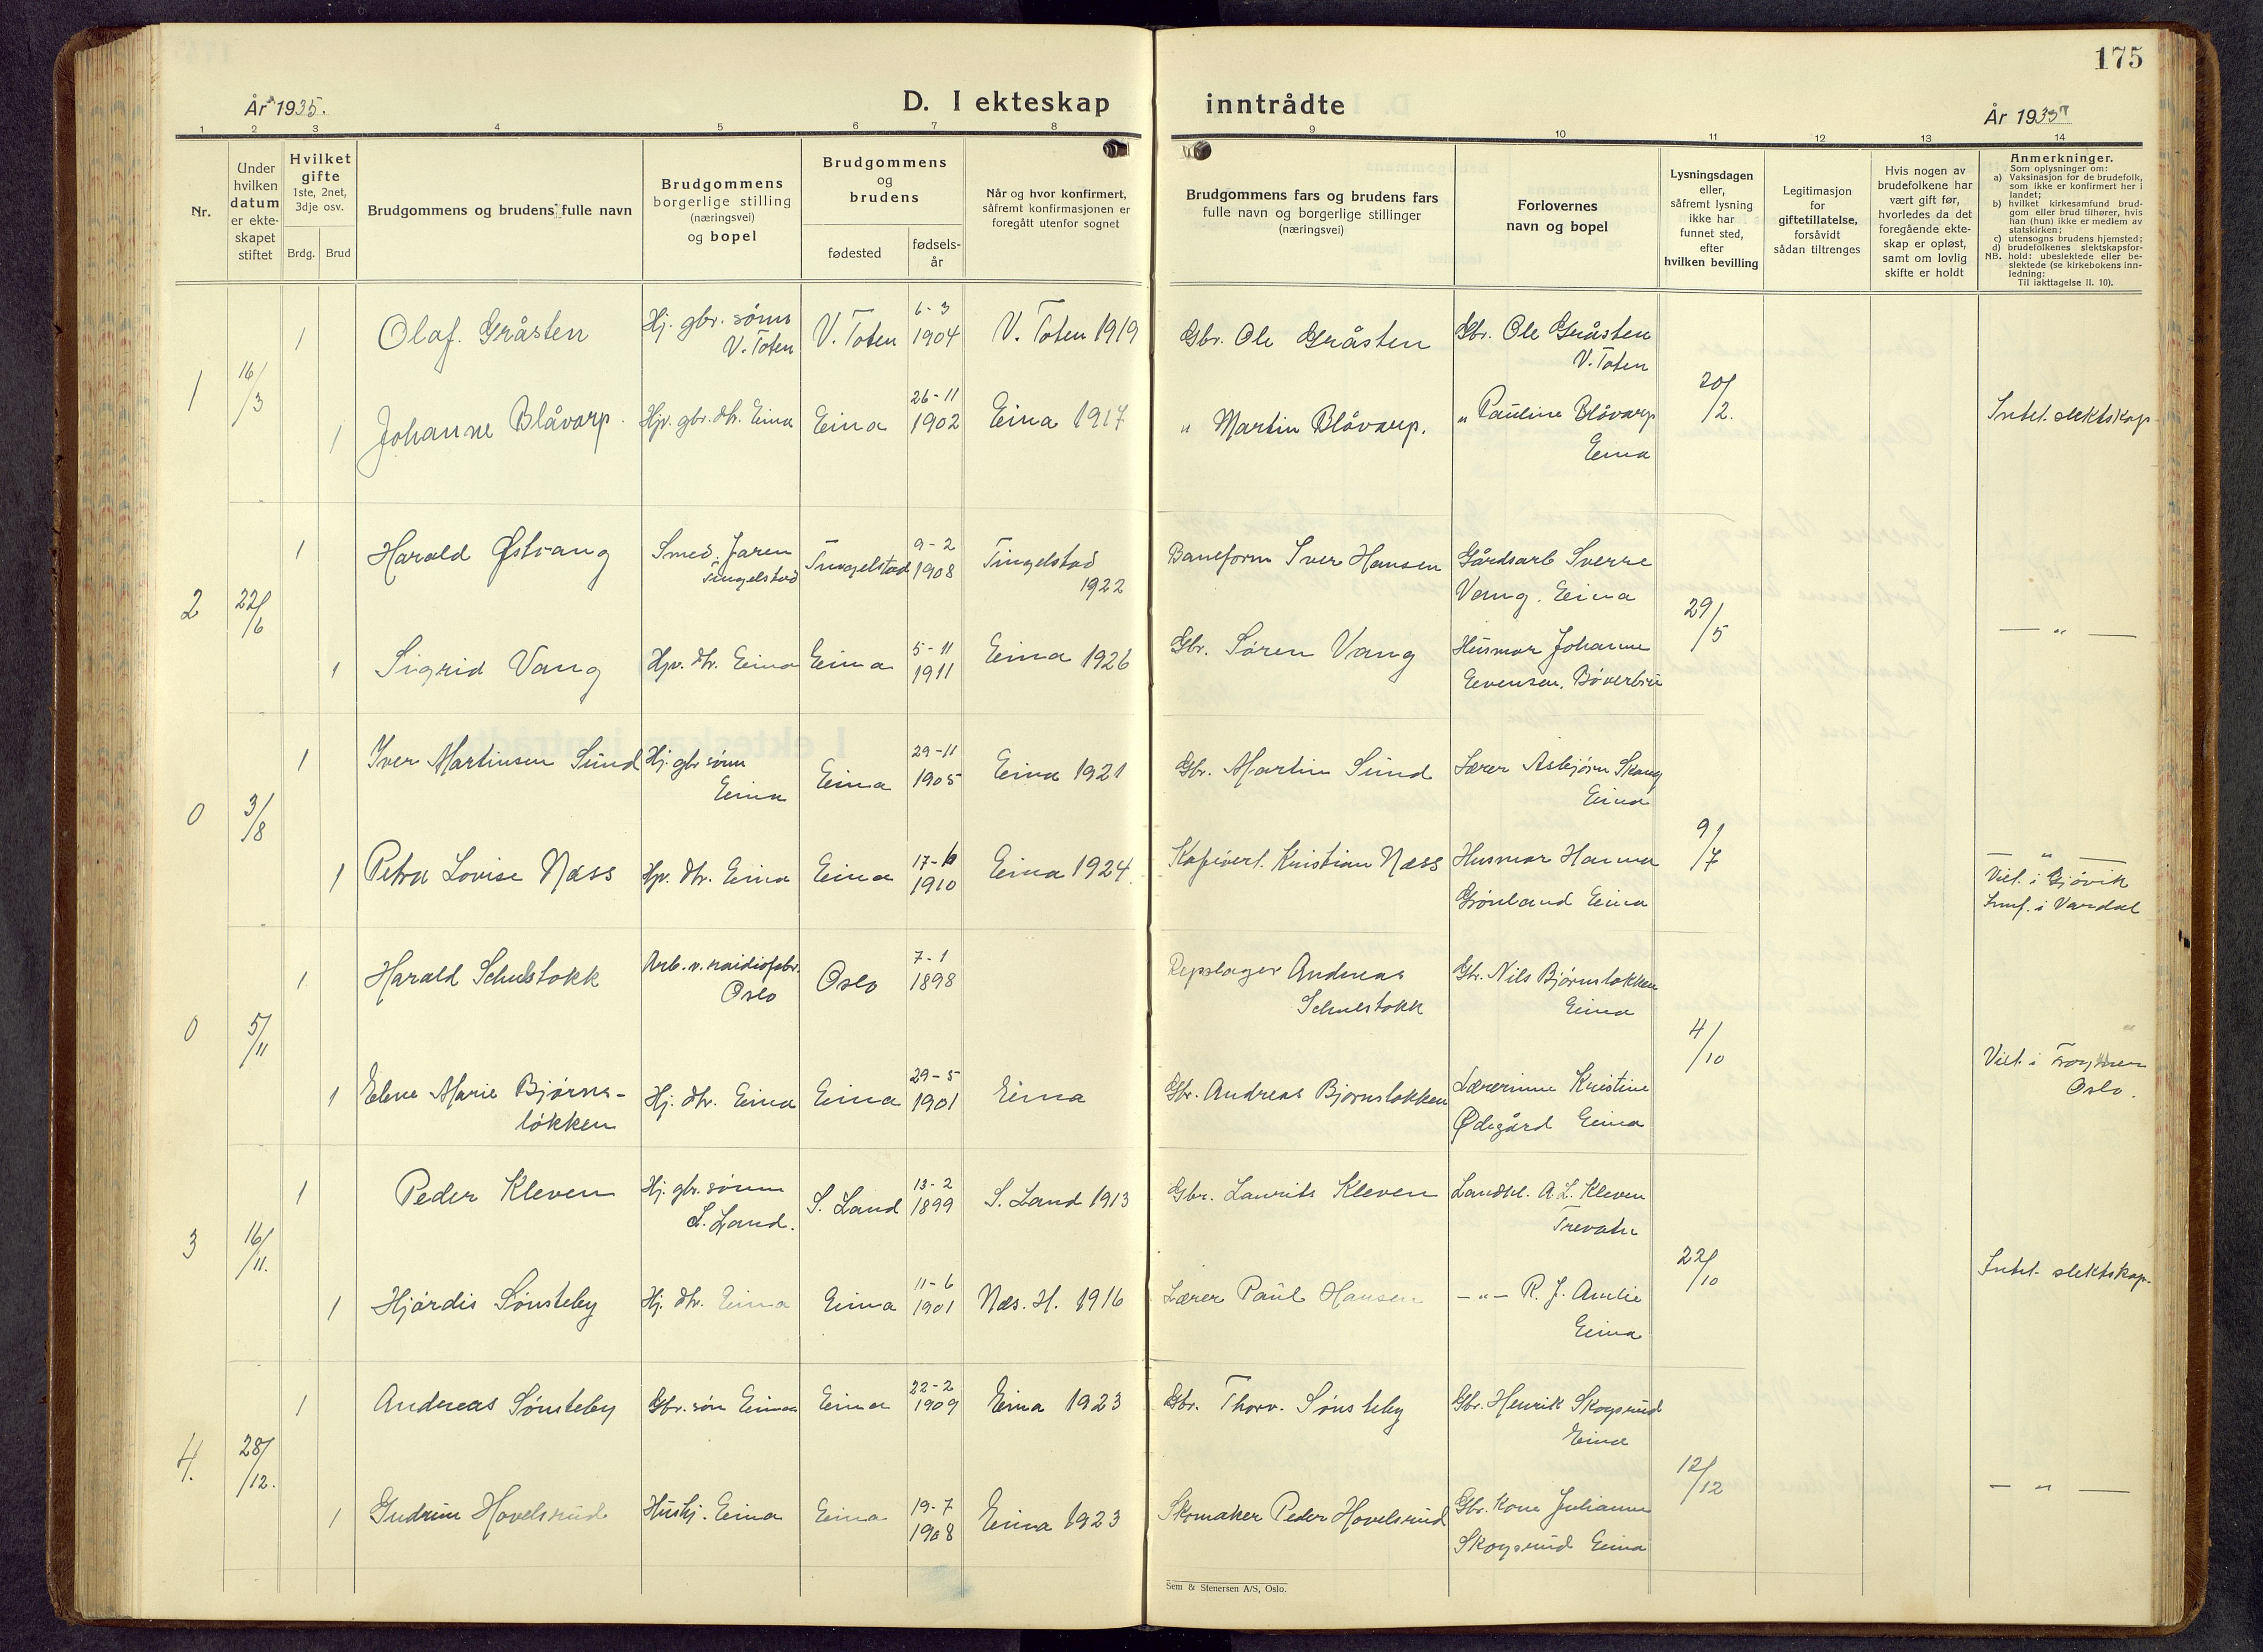 175
År 1935.
D. I ekteskap inntrådte
År 1935
1 2 3 4 5 6 7 8 9 10 11 12 13 14
Nr.
Under
hvilken
datum
er ekte-
skapet
stiftet
Hvilket
gifte
1ste, 2net,
3dje osv.
Brdg. Brud
Brudgommens og brudens fulle navn
Brudgommens
borgerlige stilling
(næringsvei)
og bopel
Brudgommens
og
brudens
fødested
fødsels-
år
Når og hvor konfirmert,
såfremt konfirmasjonen er
foregått utenfor sognet
Brudgommens fars og brudens fars
fulle navn og borgerlige stillinger
(næringsvei)
Forlovernes
navn og bopel
Lysningsdagen
eller,
såfremt lysning
ikke har
funnet sted,
efter
hvilken bevilling
Legitimasjon
for
giftetillatelse,
forsåvidt
sådan tiltrenges
Hvis nogen av
brudefolkene har
vært gift før,
hvorledes da det
foregående ekte-
skap er opløst,
samt om lovlig
skifte er holdt
Anmerkninger.
Som oplysninger om:
a) Vaksinasjon for de brudefolk,
som ikke er konfirmert her i
landet;
b) hvilket kirkesamfund brud-
gom eller brud tilhører, hvis
han (hun) ikke er medlem av
statskirken;
c) utensogns brudens hjemsted;
d) brudefolkenes slektskapsfor-
NB. hold: ubeslektede eller be-
slektede (se kirkebokens inn-
ledning:
Til iakttagelse II. 10).
1 16/3
1 Olaf Gråsten Hj. gbr. sønn V. Toten V. Toten 6-3 1904 V. Toten 1919 Gbr. Ole Gråsten Gbr. Ole Gråsten V. Toten
20/2.
1 Johanne Blåvarp. Hjv. gbr. dtr. Eina Eina 26-11 1902 Eina 1917 " Martin Blåvarp. " Pauline Blåvarp Eina Intet slektskap
2 22/6
1 Harald Østvang Smed. Jaren Tingelstad Tingelstad 9-2 1908 Tingelstad 1922 Baneform Iver Hansen Gårdsarb Sverre Vang. Eina
29/5 — " —
1 Sigrid Vang Hjv. dtr. Eina Eina 5-11 1911 Eina 1926 Gbr. Søren Vang Husmor Johanne Evensen,
0 3/8
1 Iver Martinsen Sund Hj. gbr sønn Eina Eina 29-11 1905 Eina 1921 Gbr. Martin Sund Lærer Asbjørn Skaug Eina
9/7
1 Petra Lovise Næss Hjv. dtr. Eina Eina 17- 1910 Eina 1924. Kristian Næss Husmor Hanna Grønland Eina — " — Viet. i Gjøvik i Vardal
0 5/11
1 Harald Schulstokk Arb. v. raidiofabr. Oslo Oslo 7-1 1898 Repslager Andreas Schulstokk Gbr. Nils Bjørnsløkken Eina
4/10
1 Elene Marie Bjørns-
løkken Hj. dtr. Eina Eina 29-5 1901 Eina Gbr. Andreas Bjørnsløkken Lærerinne Kristine Ødegård Eina Viet. i Oslo.
3 16/11.
1 Peder Kleven Hj. gbr. sønn S. Land. S. Land 13-2 1899 S. Land 1913 Gbr. Laurits Kleven Landhl. A. L. Kleven Trevatn
22/10
1 Hjørdis Sønsteby Hj. dtr. Eina Eina 11-6 1901 Næs. H. 1916 Lærer Paul Hansen — " — R. J. Amlie Eina Intet slektskap.
4. 28/12.
1 Andreas Sønsteby Gbr. søn Einaa Eina 22-2 1909 Eina 1923 Gbr. Thorv. Sønsteby Gbr. Henrik Skogsrud Eina
12/12 — " —
1 Gudrun Hovelsrud Hushj. Eina Eina 19-7 1908 Eina 1923 Skomaker Peder Hovelsrud Gbr. kone Julianne Skogsrud Eina
Sem & Stenersen A/S, Oslo.